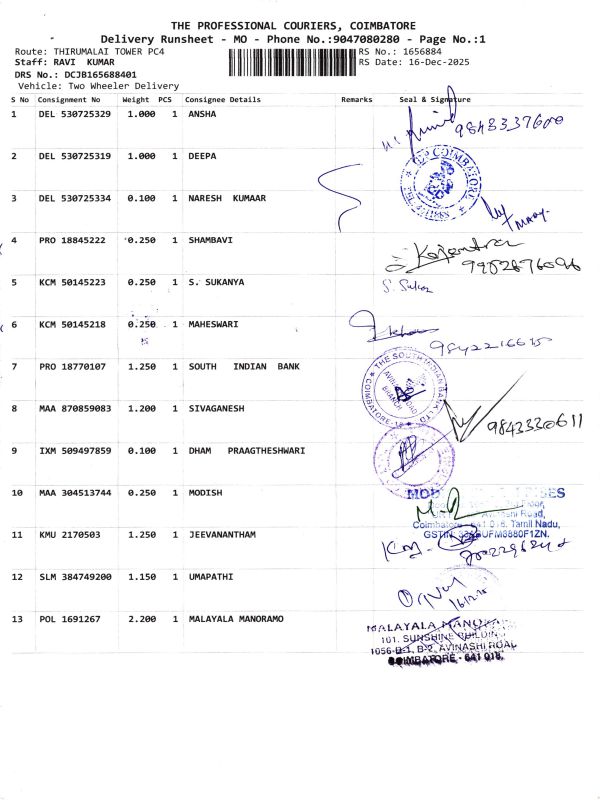 THE PROFESSIONAL COURIERS, COIMBATORE
Delivery Runsheet - MO - Phone No.:9047080280 - Page No.:1
Route: THIRUMALAI TOWER PC4
RS No.: 1656884
Staff: RAVI KUMAR
RS Date: 16-Dec-2025
DRS No.: DCJB165688401
Vehicle: Two Wheeler Delivery
S No Consignment No Weight PCS Consignee Details Remarks Seal & Signature
1 DEL 530725329 1.000 1 ANSHA
9843337600
2 DEL 530725319 1.000 1 DEEPA
COIMBATORE
3 DEL 530725334 0.100 1 NARESH KUMAAR
4 PRO 18845222 0.250 1 SHAMBAVI
Rajendran
5 KCM 50145223 0.250 1 S. SUKANYA
6 KCM 50145218 0.250 1 MAHESWARI
7 PRO 18770107 1.250 1 SOUTH INDIAN BANK
THE SOUTH INDIAN BANK LTD.
COIMBATORE
BRANCH
8 MAA 870859083 1.200 1 SIVAGANESH
9843330611
9 IXM 509497859 0.100 1 DHAM PRAAGTHESHWARI
10 MAA 304513744 0.250 1 MODISH
Coimbatore - 641 018. Tamil Nadu,
11 KMU 2170503 1.250 1 JEEVANANTHAM
12 SLM 384749200 1.150 1 UMAPATHI
13 POL 1691267 2.200 1 MALAYALA MANORAMO
MALAYALA MANORAMA
101, SUNSHINE BUILDING
1056-B-1, B-2, AVINASHI ROAD
COIMBATORE - 641 018.